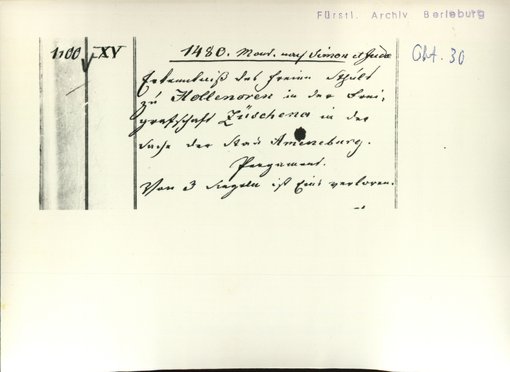 Fürstl. Archiv Berleburg
1100 XV
1480. Mont. nach Simon et Juda
Okt. 30
Erkenntniß des freien Stuhls
zu Hollenoren in der Frei-
grafschaft Züschena in der
Sache der Stad Ameneburg.
Pergament.
Von 3 Siegeln ist Eins verloren.